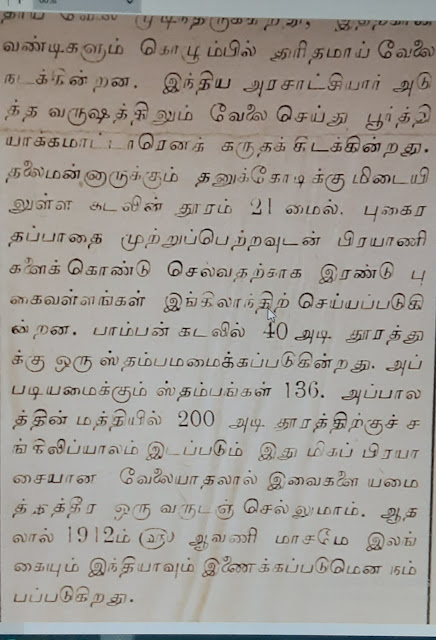 தாய் வேலை முடிந்திருக்கிறது, இதற்கான
வண்டிகளும் கொழும்பில் துரிதமாய் வேலை
நடக்கின்றன. இந்திய அரசாட்சியார் அடு
த்த வருஷத்திலும் வேலை செய்து பூர்த்தி
யாக்கமாட்டாரெனக் கருதக்கிடக்கின்றது.
தலைமன்னாருக்கும் தனுக்கோடிக்குமிடையி
லுள்ள கடலின் தூரம் 21 மைல். புகைர
தப்பாதை முற்றுப்பெற்றவுடன் பிரயாணி
களைக் கொண்டு செல்வதற்காக இரண்டு பு
கைவள்ளங்கள் இங்கிலாந்திற் செய்யப்படுகி
ன்றன. பாம்பன் கடலில் 40 அடி தூரத்து
க்கு ஒரு ஸ்தம்பமமைக்கப்படுகின்றது. அப்
படியமைக்கும் ஸ்தம்பங்கள் 136. அப்பால
த்தின் மத்தியில் 200 அடி தூரத்திற்குச் ச
ங்கிலிப்பாலம் இடப்படும் இது மிகப் பிரயா
சையான வேலையாதலால் இவைகளை யமை
த்துத்தீர ஒரு வருடஞ் செல்லுமாம். ஆத
லால் 1912ம் ௵ ஆவணி மாசமே இலங்
கையும் இந்தியாவும் இணைக்கப்படுமென நம்
பப்படுகிறது.